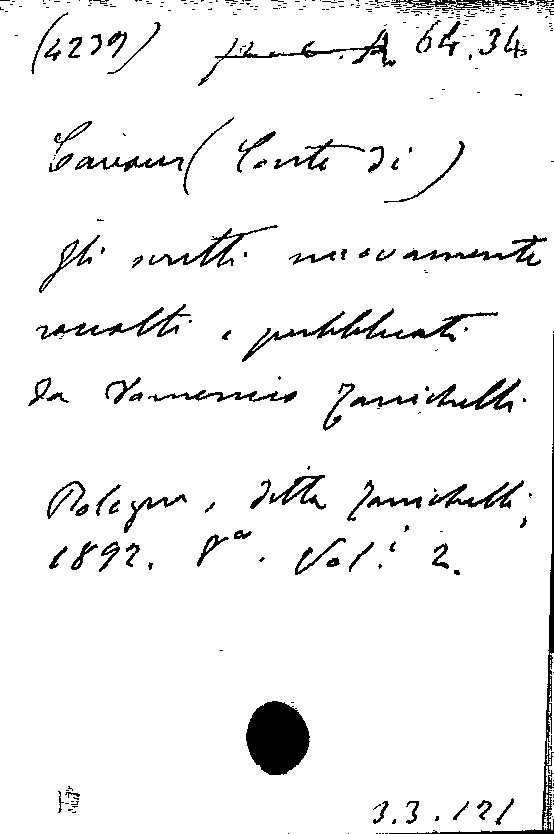 (4239) 64.34
Cavour (Conte di)
gli scritti nuovamente
raccolti e pubblicati
da Domenico Zanichelli
Bologna, ditta Zanichelli,
1892. 8º. Vol.i 2.
3.3.121